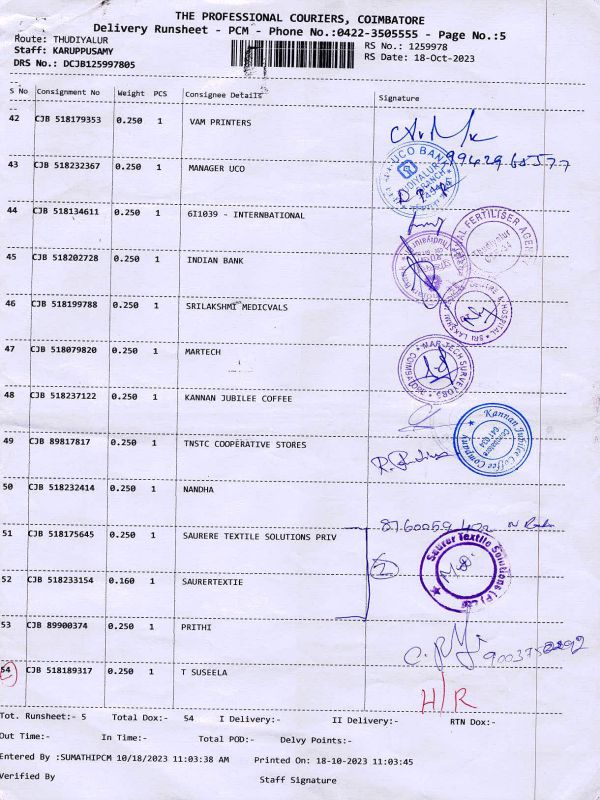 THE PROFESSIONAL COURIERS, COIMBATORE
Delivery Runsheet - PCM - Phone No.:0422-3505555 - Page No.:5
Route: THUDIYALUR
RS No.: 1259978
Staff: KARUPPUSAMY
RS Date: 18-Oct-2023
DRS No.: DCJB125997805
S No Consignment No Weight PCS Consignee Details Signature
42 CJB 518179353 0.250 1 VAM PRINTERS
43 CJB 518232367 0.250 1 MANAGER UCO
UCO BANK
44 CJB 518134611 0.250 1 6I1039 - INTERNBATIONAL
45 CJB 518202728 0.250 1 INDIAN BANK
46 CJB 518199788 0.250 1 SRILAKSHMI MEDICVALS
47 CJB 518079820 0.250 1 MARTECH
MAR TECH SURVEYORS
48 CJB 518237122 0.250 1 KANNAN JUBILEE COFFEE
Kannan Jubilee Coffee Company
49 CJB 89817817 0.250 1 TNSTC COOPERATIVE STORES
50 CJB 518232414 0.250 1 NANDHA
51 CJB 518175645 0.250 1 SAURERE TEXTILE SOLUTIONS PRIV
Saurer Textile Solutions (P) Ltd
2
52 CJB 518233154 0.160 1 SAURERTEXTIE
53 CJB 89900374 0.250 1 PRITHI
54 CJB 518189317 0.250 1 T SUSEELA
H/R
Tot. Runsheet:- 5 Total Dox:- 54 I Delivery:- II Delivery:- RTN Dox:-
Out Time:- In Time:- Total POD:- Delvy Points:-
Entered By :SUMATHIPCM 10/18/2023 11:03:38 AM Printed On: 18-10-2023 11:03:45
Verified By Staff Signature